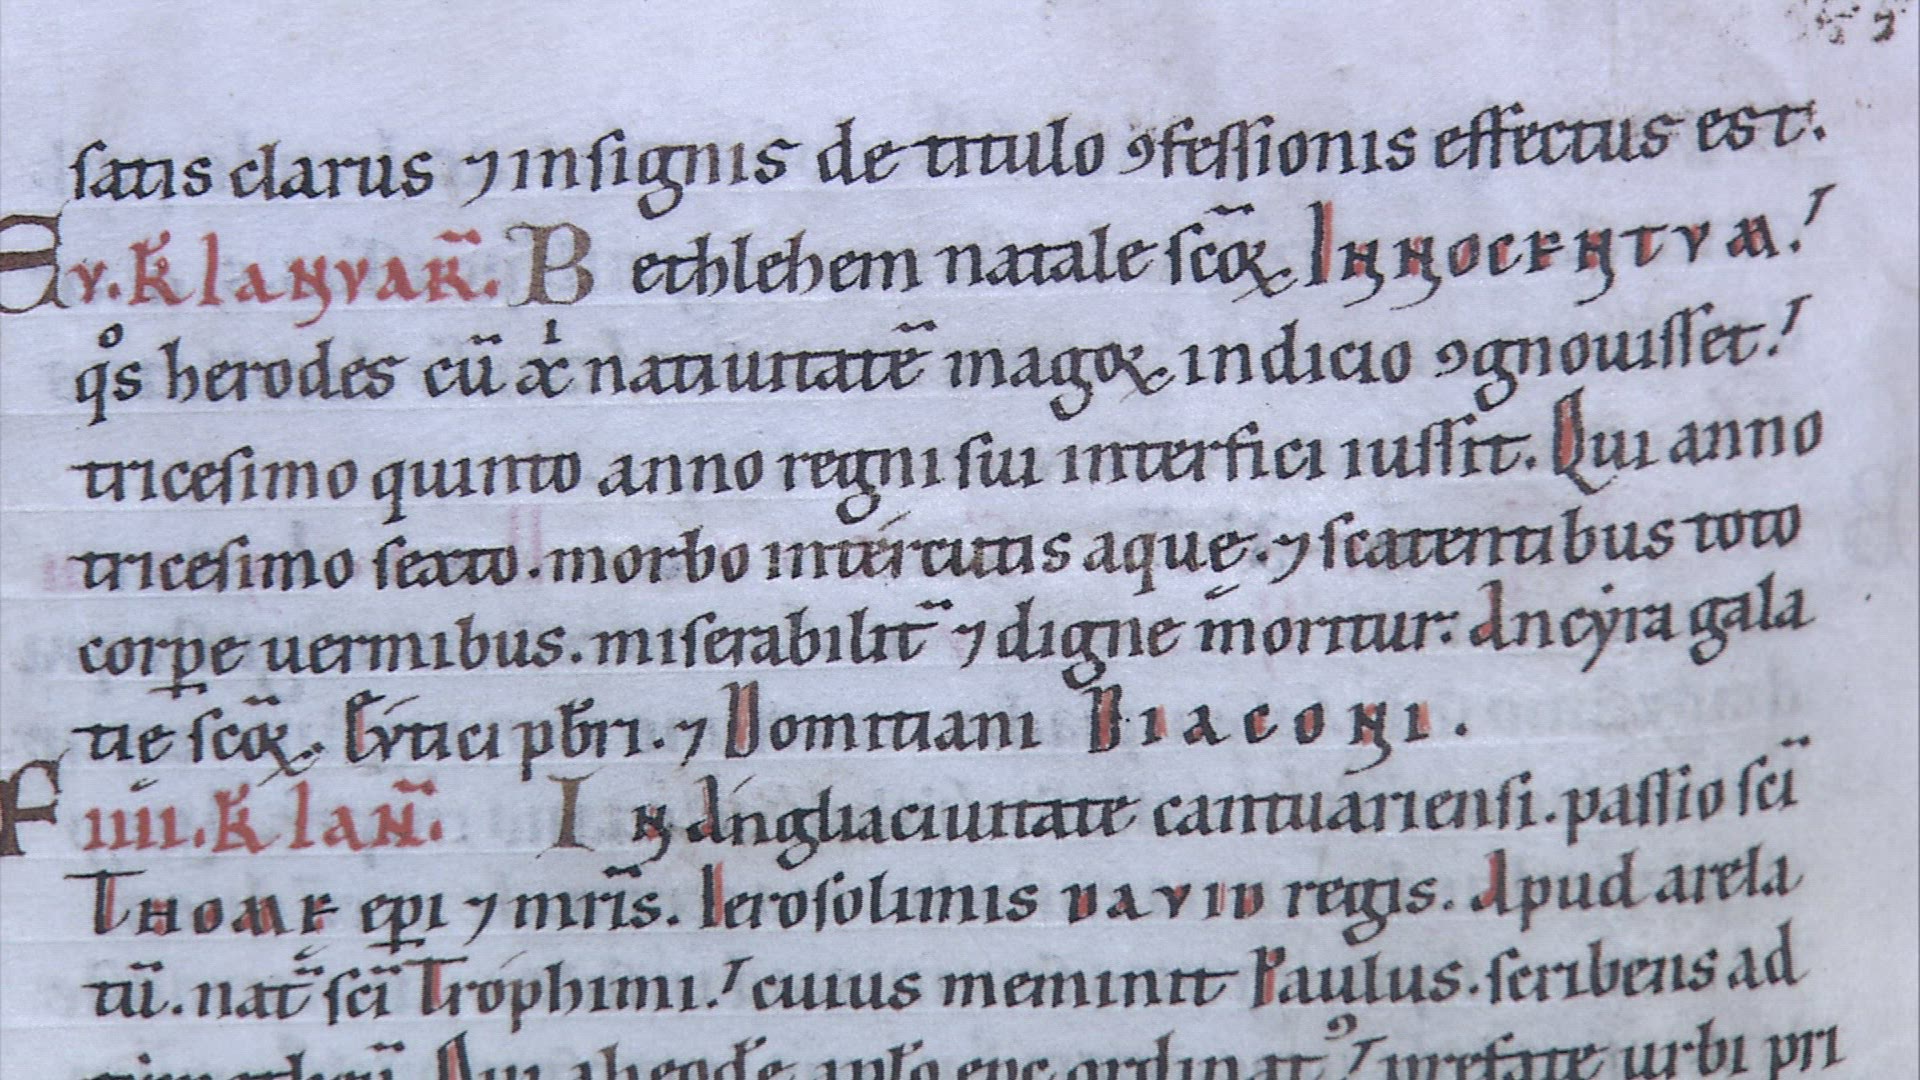 ſatis clarus ⁊ inſignis de titulo ꝯfeſſionis effectus est.
E v. k̄l IANVAR̄. Bethlehem natale ſc̄oꝝ INNOCENTVM.
qͦs herodes cū xͥ natiuitatē magoꝝ indicio ꝯgnouiſſet.
triceſimo quinto anno regni ſui interfici iuſſit. Qui anno
triceſimo ſexto. morbo intercutis aquę. ⁊ ſcatentibus toto
corꝑe uermibus. miſerabilit̄ ⁊ digne moritur. Ancyra gala
tię ſc̄oꝝ. Eytici pb̄ri. ⁊ Domitiani DIACONI.
F iiii. k̄l IAN̄. IN Anglia ciuitate cantuarienſi. paſſio ſc̄i
THOMĘ ep̱i ⁊ mr̄is. Ieroſolimis DAVID regis. Apud arela
tū. nat̄ ſc̄i Trophimi. cuius meminit Paulus. ſcribens ad
urbi pri